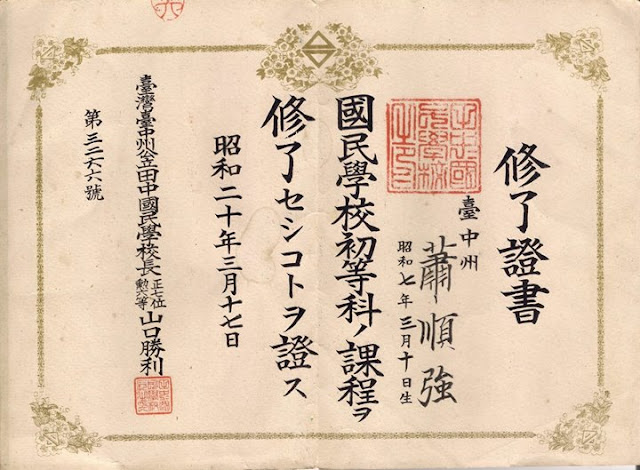 修了證書
臺中州
蕭順強
昭和七年三月十日生
國民學校初等科ノ課程ヲ
修了セシコトヲ證ス
昭和二十年三月十七日
臺灣臺中州公立田中國民學校長 正七位 勲六等 山口勝利
第三二六六號